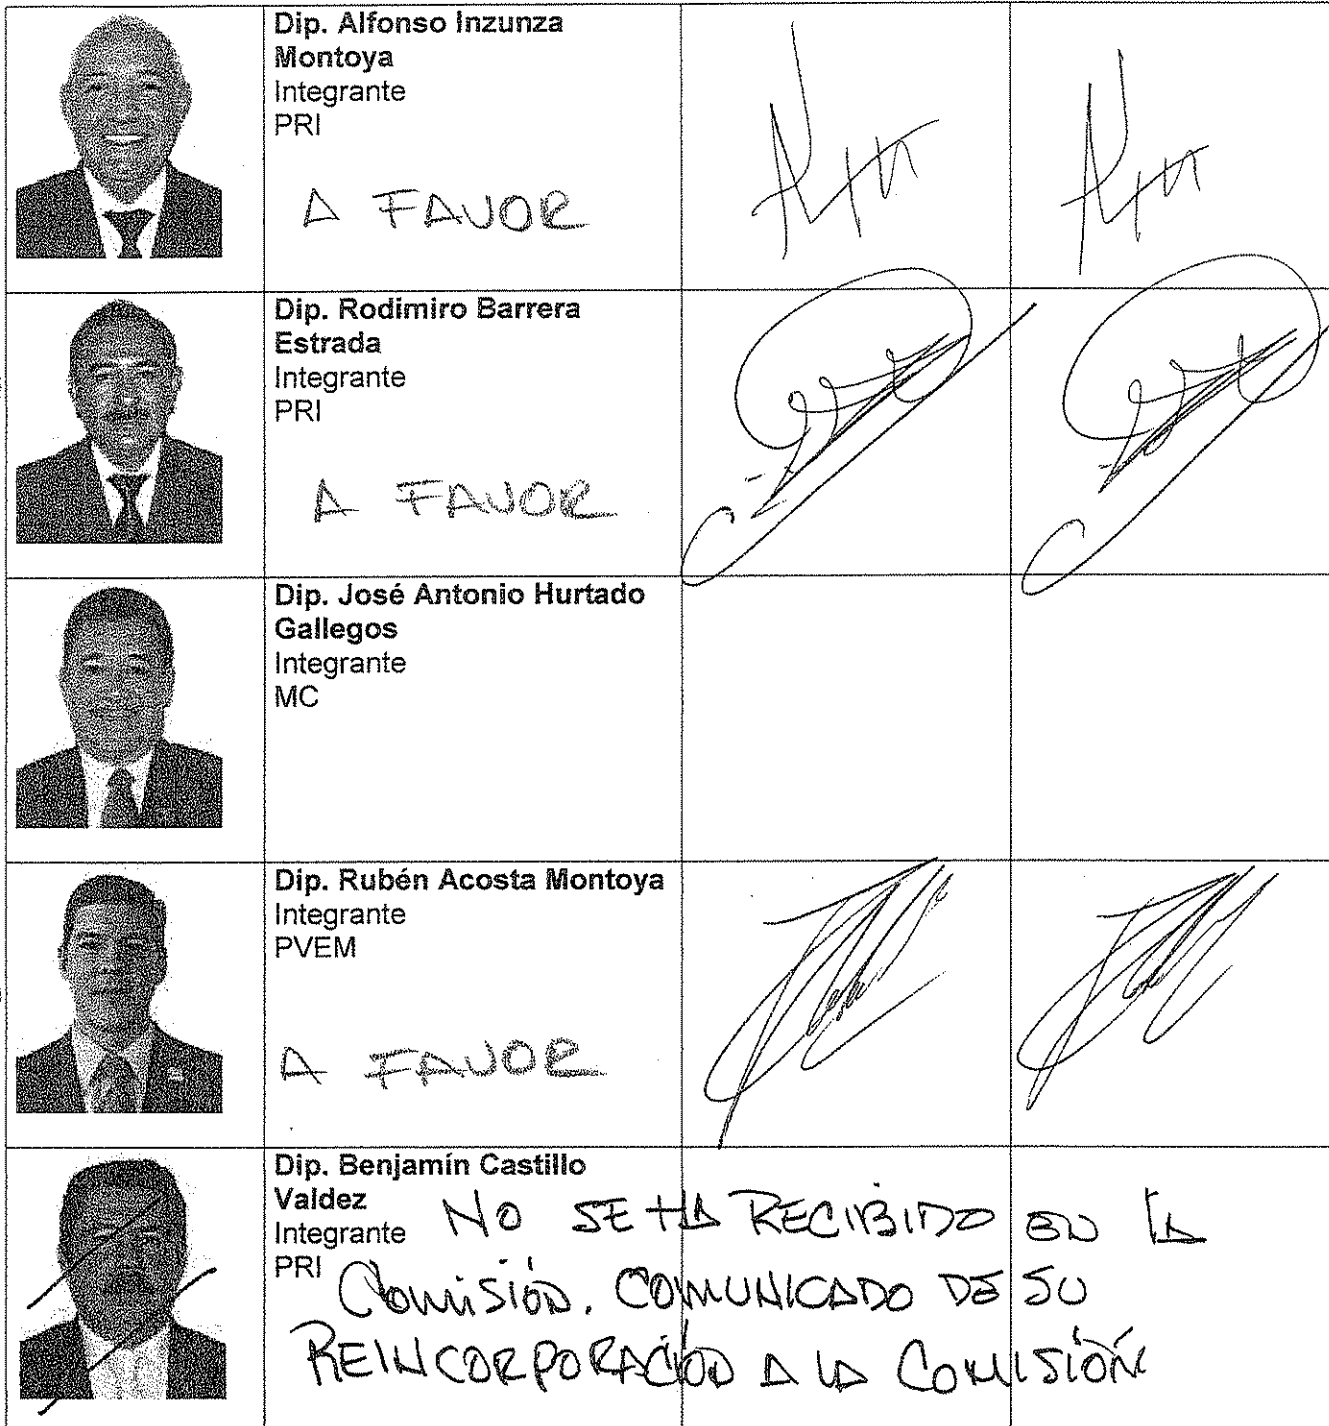 Dip. Alfonso Inzunza
Montoya
Integrante
PRI
A FAVOR
Dip. Rodimiro Barrera
Estrada
Integrante
PRI
A FAVOR
Dip. José Antonio Hurtado
Gallegos
Integrante
MC
Dip. Rubén Acosta Montoya
Integrante
PVEM
A FAVOR
Dip. Benjamín Castillo
Valdez
Integrante
PRI
NO SE HA RECIBIDO EN LA
COMISIÓN. COMUNICADO DE SU
REINCORPORACIÓN A LA COMISIÓN